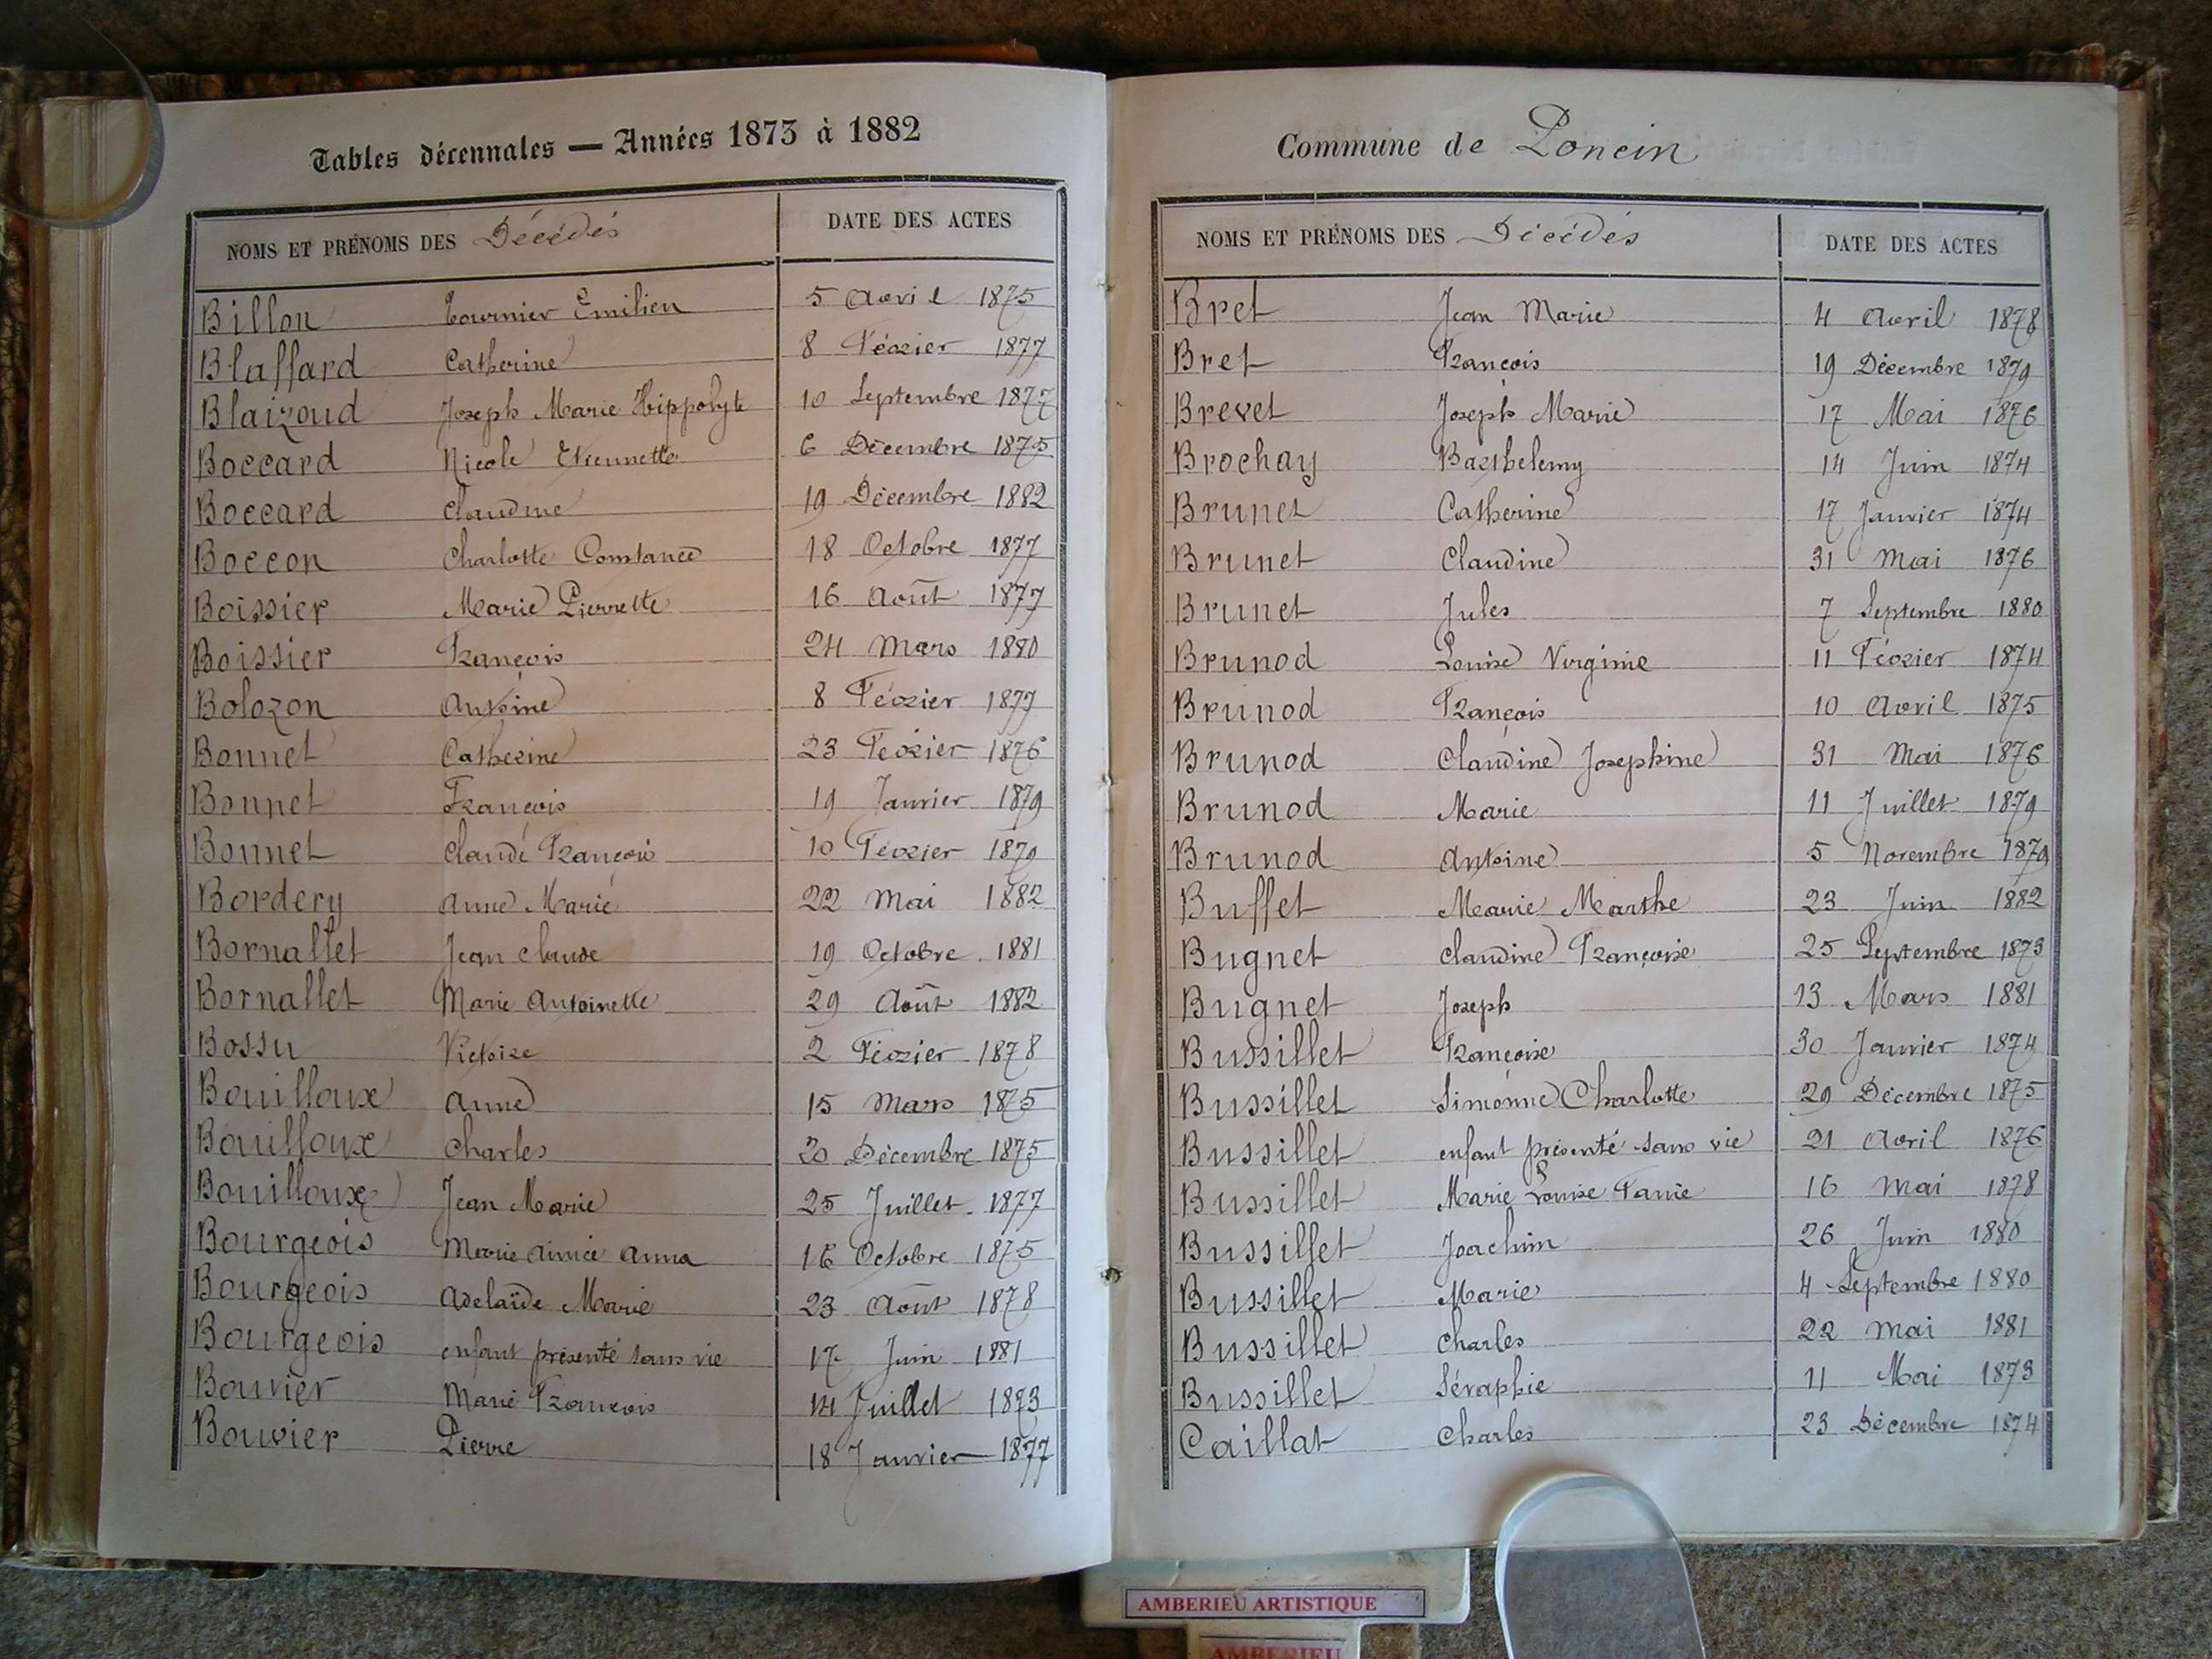 Tables décennales — Années 1873 à 1882
NOMS ET PRÉNOMS DES Décédés DATE DES ACTES
Billon Tournier Emilien 5 Avril 1875
Blaffard Catherine 8 Février 1877
Blaizoud Joseph Marie Hippolyte 10 Septembre 1877
Boccard Nicole Etiennette 6 Décembre 1875
Boccard Claudine 19 Décembre 1882
Boccon Charlotte Constance 18 Octobre 1877
Boissier Marie Pierrette 16 Août 1877
Boissier François 24 Mars 1880
Bolozon Antoine 8 Février 1877
Bonnet Catherine 23 Février 1876
Bonnet François 19 Janvier 1879
Bonnet Claude François 10 Février 1879
Bordery Anne Marie 22 Mai 1882
Bornallet Jean Claude 19 Octobre 1881
Bornallet Marie Antoinette 29 Août 1882
Bossu Victoire 2 Février 1878
Bouilloux Anne 15 Mars 1875
Bouilloux Charles 20 Décembre 1875
Bouilloux Jean Marie 25 Juillet 1877
Bourgeois Marie Aimée Anna 16 Octobre 1875
Bourgeois Adelaïde Marie 23 Août 1878
Bourgeois enfant présenté sans vie 17 Juin 1881
Bouvier Marie François 14 Juillet 1873
Bouvier Pierre 18 Janvier 1877
Commune de Poncin
NOMS ET PRÉNOMS DES Décédés DATE DES ACTES
Bret Jean Marie 4 Avril 1878
Bret François 19 Décembre 1879
Brevet Joseph Marie 17 Mai 1876
Brochay Barthelemy 14 Juin 1874
Brunet Catherine 17 Janvier 1874
Brunet Claudine 31 Mai 1876
Brunet Jules 7 Septembre 1880
Brunod Louise Virginie 11 Février 1874
Brunod François 10 Avril 1875
Brunod Claudine Josephine 31 Mai 1876
Brunod Marie 11 Juillet 1879
Brunod Antoine 5 Novembre 1879
Buffet Marie Marthe 23 Juin 1882
Bugnet Claudine Françoise 25 Septembre 1873
Bugnet Joseph 13 Mars 1881
Bussillet Françoise 30 Janvier 1874
Bussillet Simonne Charlotte 29 Décembre 1875
Bussillet enfant présenté sans vie 21 Avril 1876
Bussillet Marie Louise Fanie 16 Mai 1878
Bussillet Joachim 26 Juin 1880
Bussillet Marie 4 Septembre 1880
Bussillet Charles 22 Mai 1881
Bussillet Séraphie 11 Mai 1873
Caillat Charles 23 Décembre 1874
AMBERIEU ARTISTIQUE
AMBERIEU